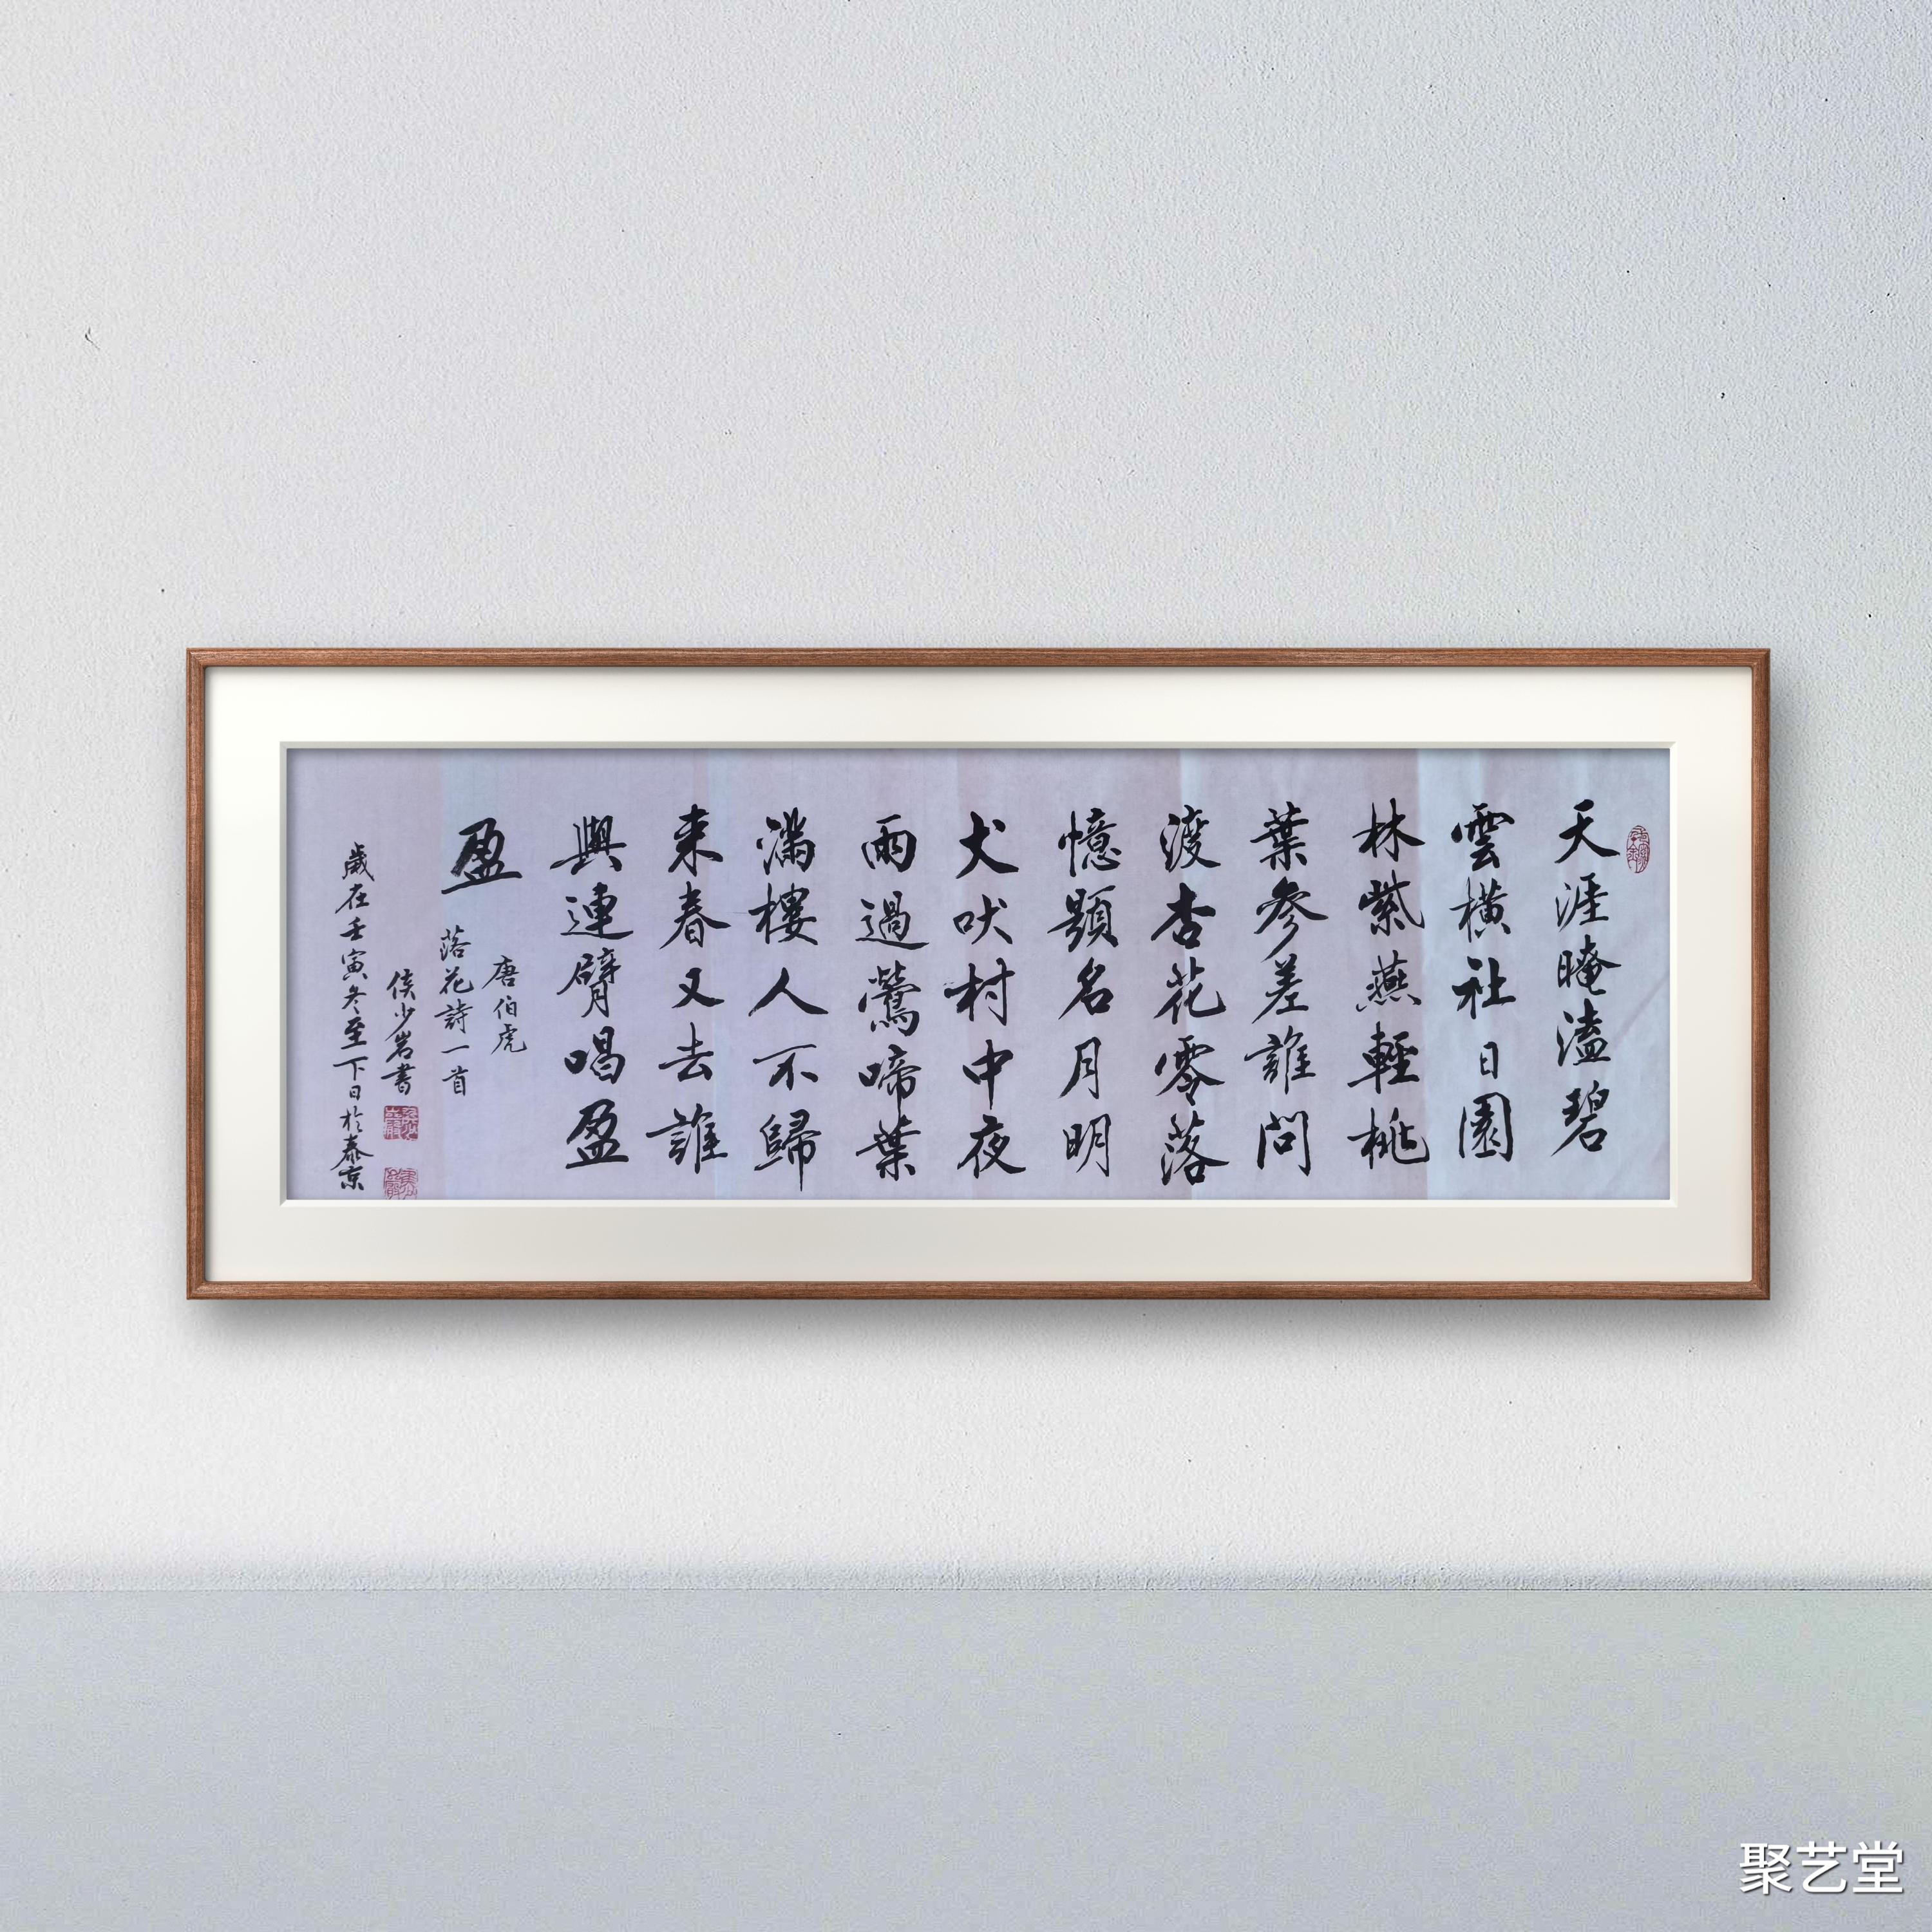 天涯晻溘碧
雲橫社日園
林紫燕輕桃
葉參差誰問
渡杏花零落
憶題名月明
犬吠村中夜
雨過鶯啼葉
滿樓人不歸
來春又去誰
與連臂唱盈
盈
唐伯虎
落花詩一首
侯少岩書
歲在壬寅冬至下日於秦京
聚艺堂